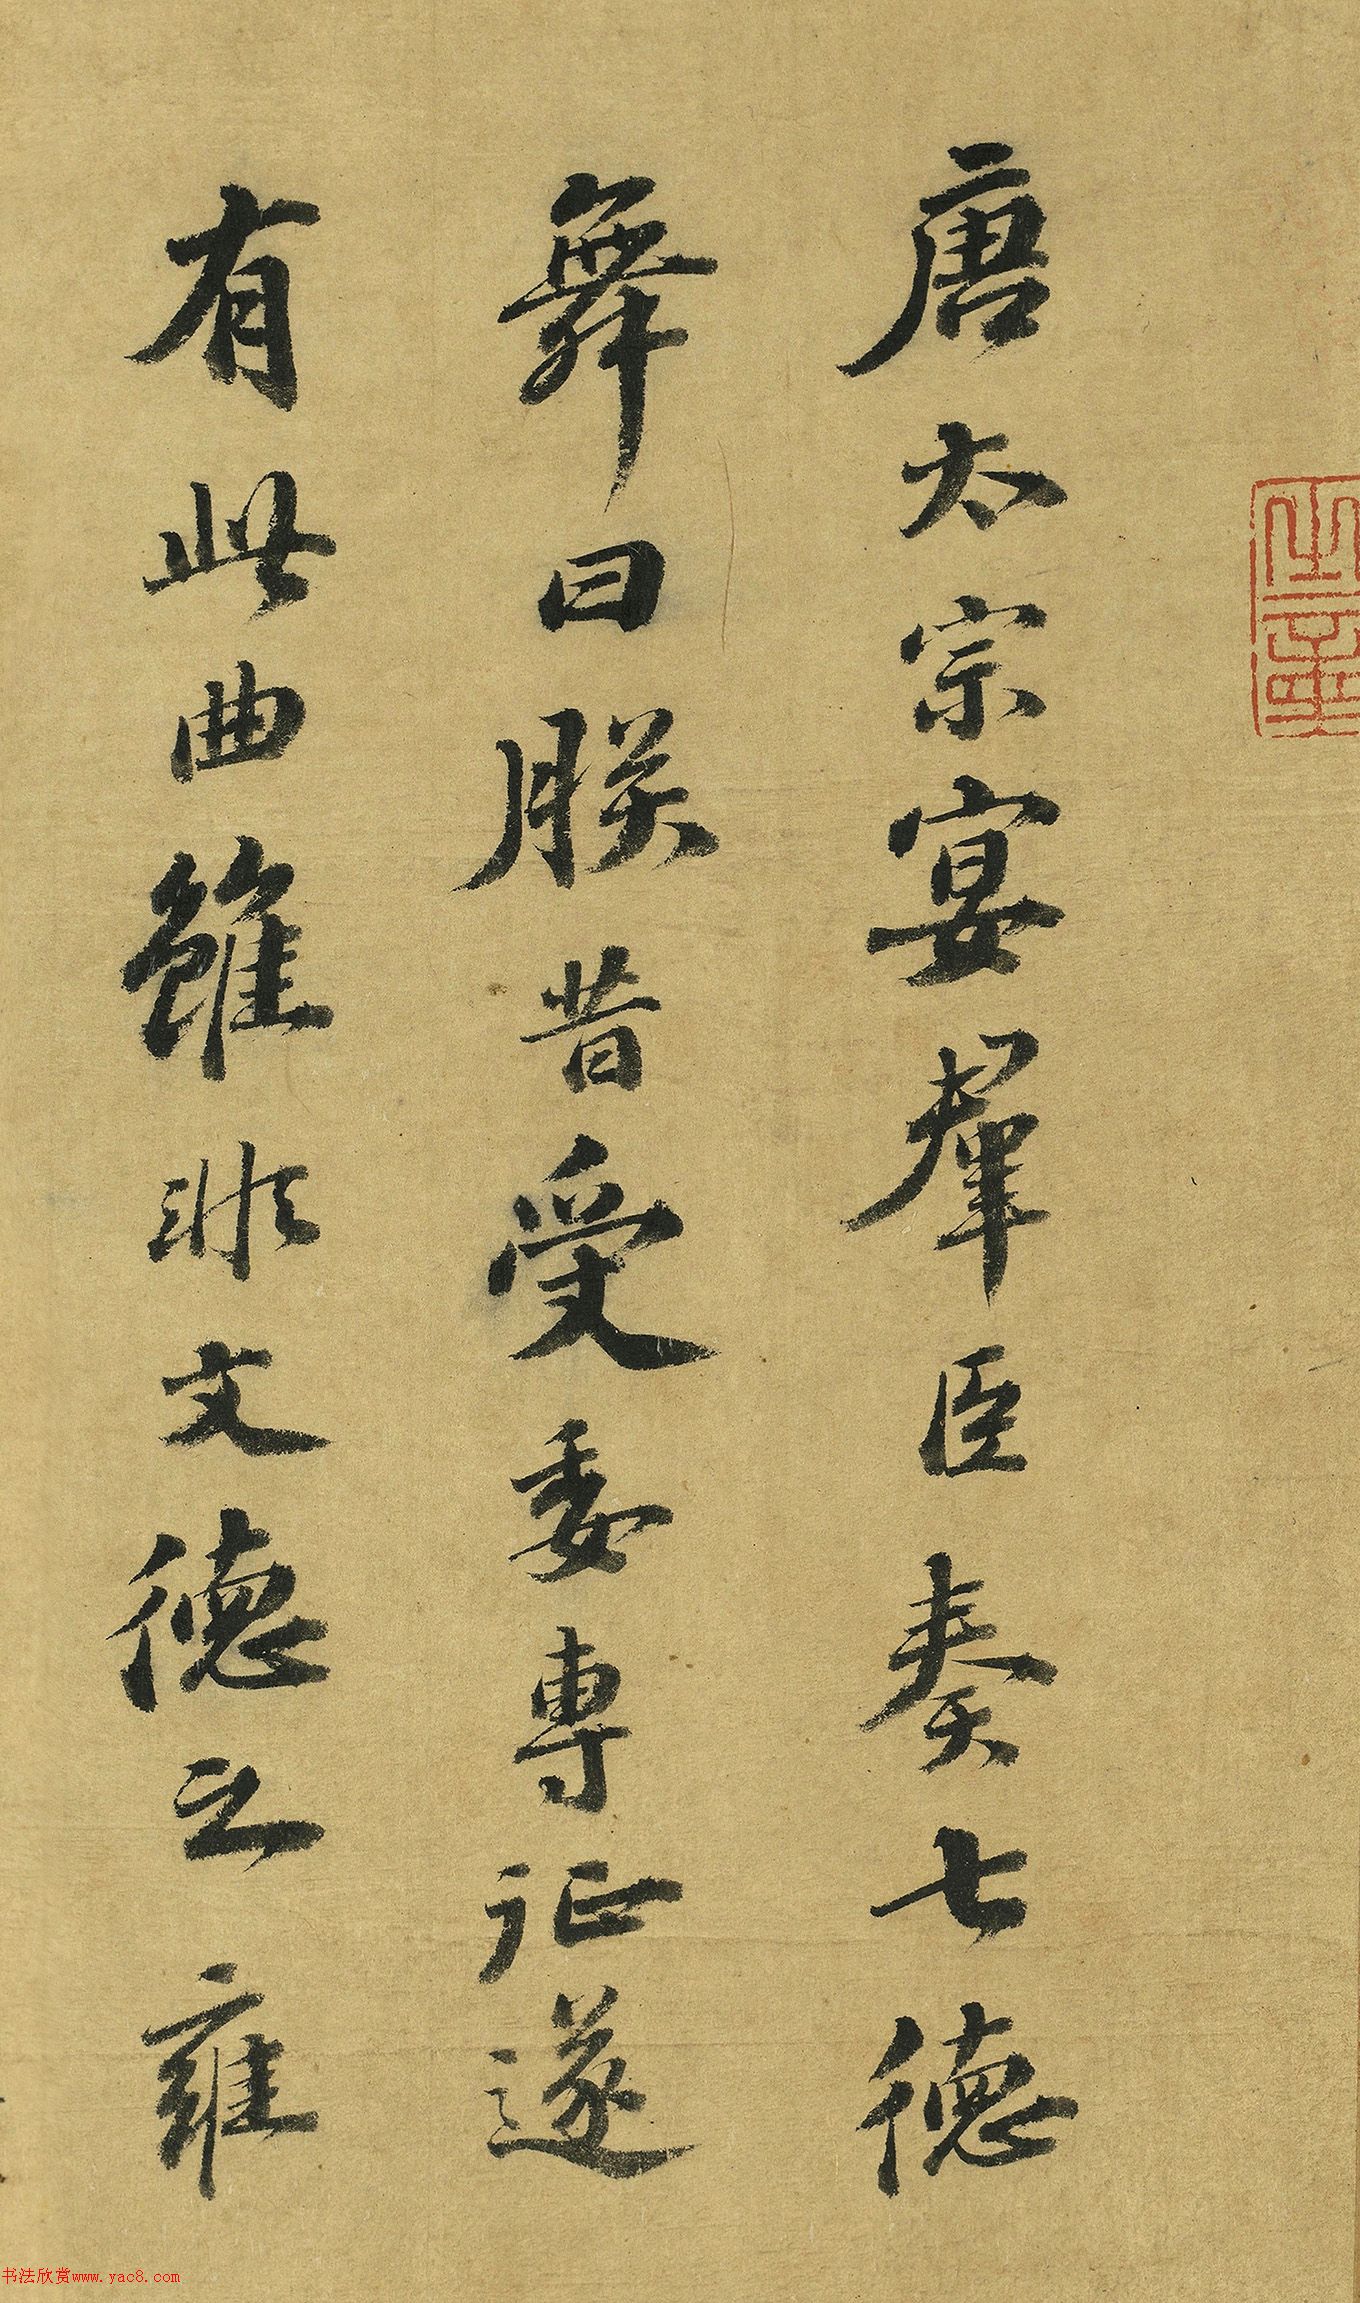 唐太宗宴羣臣奏七德
舞曰朕昔受委專征遂
有此曲雖非文德之雍
之璽
书法欣赏www.yac8.com